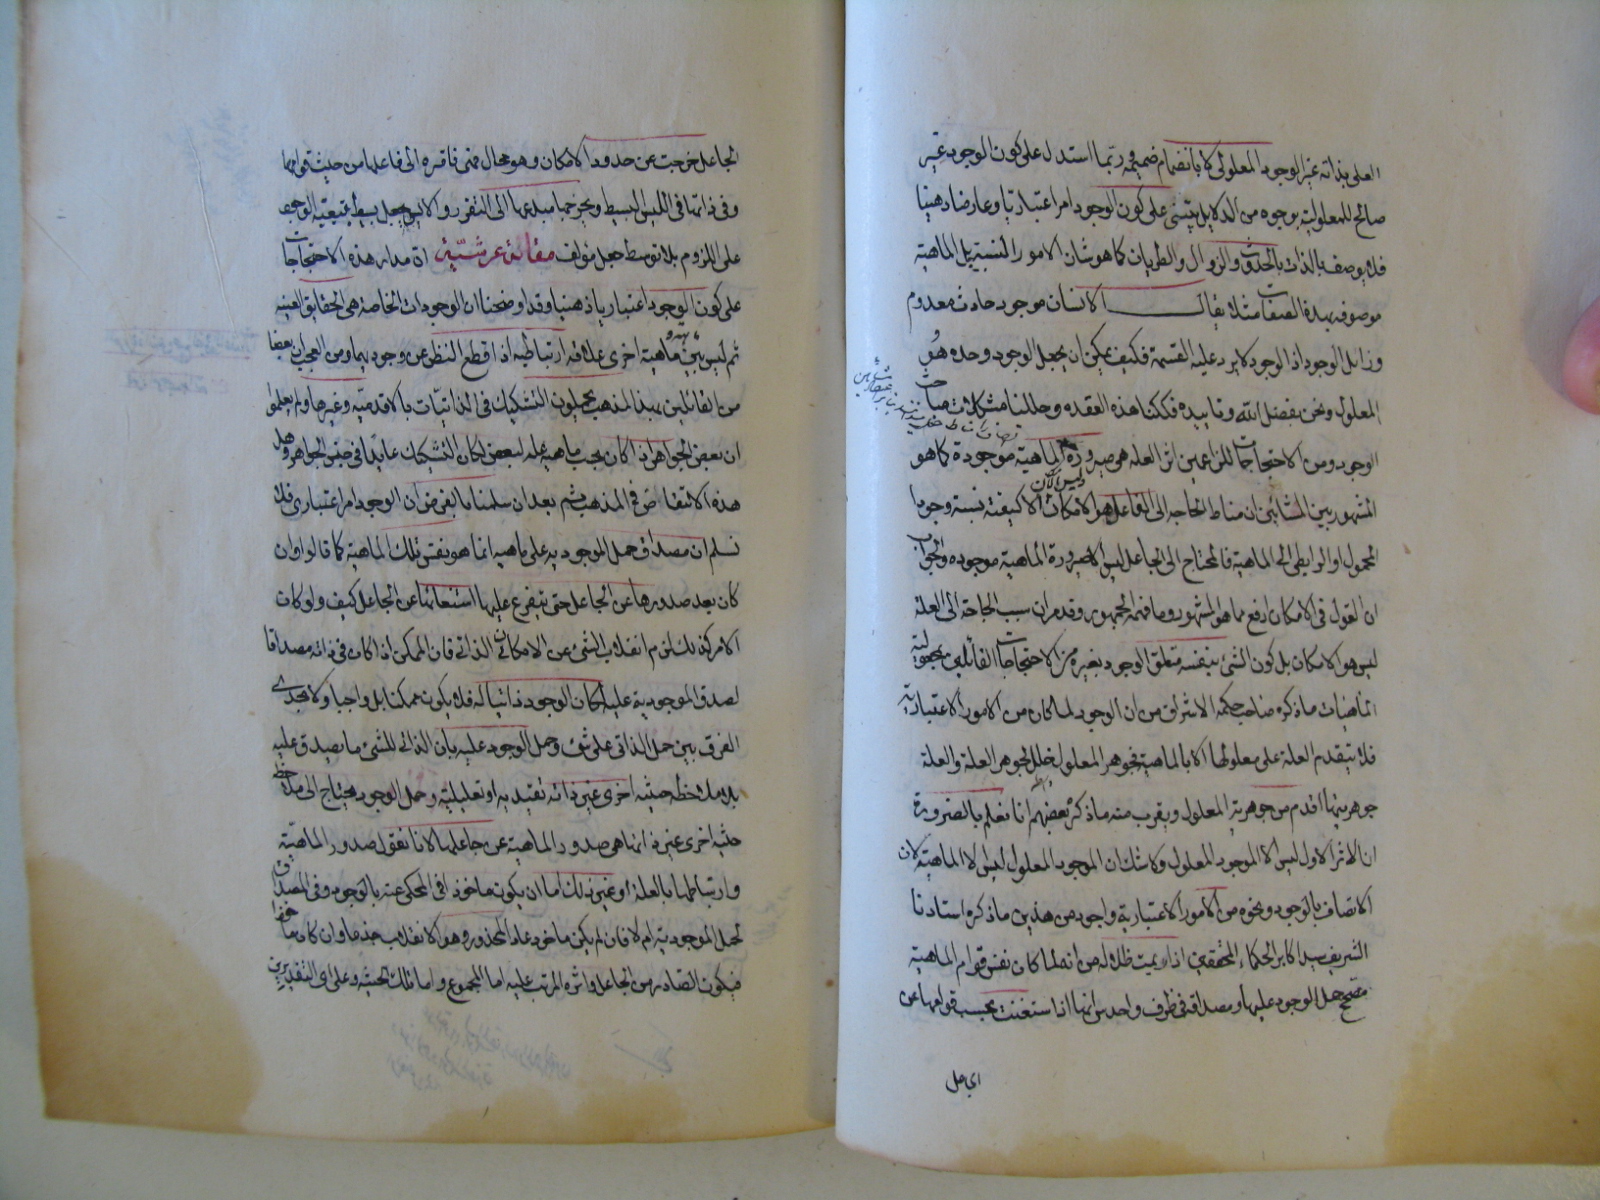 العلى بذاته غير الوجود المعلولى لا بانضمام ضميمة وربما استدل على كون الوجود غير
صالح للمعلولية بوجوه من الدلايل يبتنى على كون الوجود امرا اعتباريا وعارضا ذهنيا
فلا يوصف بالذات بالحدوث والزوال والطريان كما هو شان الامور النسبية بل الماهية
موصوفة بهذه الصفات مثلا يقال الانسان موجود حادث معدوم
وزايل لا الوجود اذ الوجود لا يرد عليه القسمة فكيف يمكن ان يجعل الوجود وحده هو
المعلول ونحن بفضل الله وتاييده فككنا هذه العقده وحللنا مشكلات مباحث
الوجود ومن الاحتجاجات للزاعمين اثر العلة هى صيرورة الماهية موجودة كما هو
المشهور بين المشائين ان مناط الحاجه الى الفاعل هو الامكان وليس الامكان الا كيفية نسبة وجود
المحمول او الرابطى الى الماهية فالمحتاج الى الجاعل ليس الا صيرورة الماهية موجوده والجواب
ان القول فى الامكان ارفع مما هو المشهور وما فهمه الجمهور وقد مر ان سبب الحاجة الى العلة
ليس هو الامكان بل كون الشئ بنفسه متعلق الوجود بغيره ومن الاحتجاجات القائلين بمجعولية
الماهيات ما ذكره صاحب حكمة الاشراق من ان الوجود لما كان من الامور الاعتبارية
فلا يتقدم العلة على معلولها الا بالماهية فجوهر المعلول ظل لجوهر العلة والعلة
جوهريتها اقدم من جوهرية المعلول ويقرب منه ما ذكره بعضهم انا نعلم بالضرورة
ان الاثر الاول ليس الا الموجود المعلول ولا شك ان الموجود المعلول ليس الا الماهية لان
الاتصاف بالوجود ونحوه من الامور الاعتبارية واجود من هذين ما ذكره استادنا
الشريف سيد اكابر الحكماء المحققين اديمت ظلاله من انه لما كان نفس قوام الماهية
مصحح حمل الوجود عليها ومصداقه فى ظرف واحد من انها اذا استغنت بحسب قوامها عن
الجاعل خرجت عن حدود الامكان وهو محال فهى فاقره الى فاعلها من حيث قوامها
وفى ذاتها فى الليس البسيط ويخرجها مبدعها الى التقرر والايس بجعل بسيط يتبعه الوجود
على اللزوم بلا توسط جعل مؤلف مقالة عرشية ان مدار هذه الاحتجاجات
على كون الوجود اعتباريا ذهنيا وقد اوضحنا ان الوجودات الخاصة هى الحقايق العينيه
ثم ليس بين ماهية وماهية اخرى علاقة ارتباطيه اذا قطع النظر عن وجوديهما ومن العجب ان بعضا
من القائلين بهذا المذهب يحيلون التشكيك فى الذاتيات بالاقدمية وغيرها ولم يعلموا
ان بعض الجواهر اذا كان بحسب ماهيته علة لبعض لكان التشكيك عايدا فى جنس الجواهر وهل
هذه الا تناقض فى المذهب ثم بعد ان سلمنا بالفرض ان الوجود امر اعتبارى فلا
نسلم ان مصداق حمل الموجودية على ماهيه انما هو نفس تلك الماهية كما قالوا وان
كان بعد صدورها عن الجاعل حتى يتفرع عليها استغنائها عن الجاعل كيف ولو كان
الامر كذلك لزم انقلاب الشئ عن الامكان الذاتى فان الممكن اذا كان فى ذاته مصداقا
لصدق الموجودية عليه لكان الوجود ذاتيا له فلا يكون ممكنا بل واجبا ولا يجدى
الفرق بين حمل الذاتى على شئ وحمل الوجود عليه بان الذاتى للشئ ما يصدق عليه
بلا ملاحظه حيثية اخرى غير ذاته تقييديه او تعليلية وحمل الوجود يحتاج الى ملاحظة
حيثية اخرى غير ذاتها هى صدور الماهية عن جاعلها لانا نقول صدور الماهية
وارتباطها بالعلة او غير ذلك اما ان يكون ماخوذا فى المحكى عنه بالوجود وفى المصداق
لحمل الموجودية ام لا فان لم يكن ماخوذا عاد المحذور وهو الانقلاب جذما وان كان ماخوذا
فيكون الصادر من الجاعل واثره المرتب عليه اما المجموع واما تلك الحيثية وعلى اى التقديرين
اى حمل